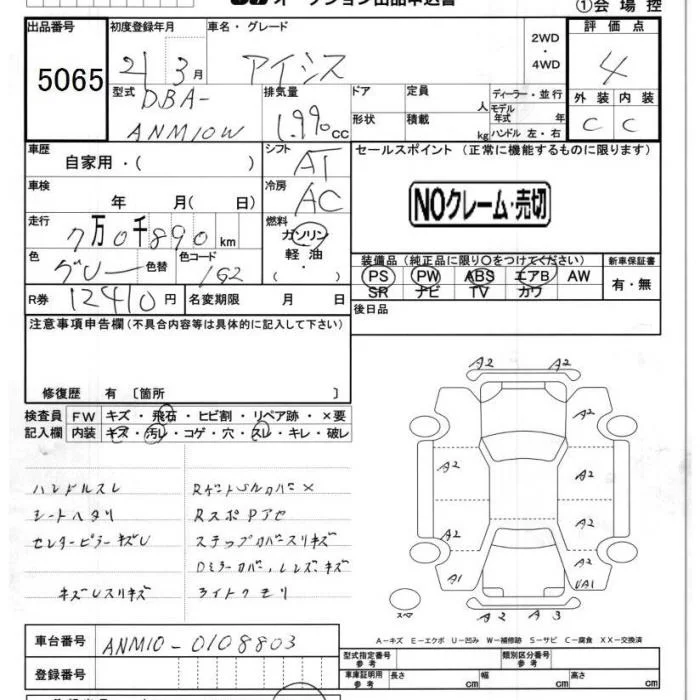 オークション出品申込書
①会場控
出品番号 初度登録年月 車名・グレード 評価点
5065 21 3月 アイシス 2WD・4WD 4
型式 DBA-ANM10W 排気量 1.990cc ドア 定員 人 ディーラー・並行 外装 内装
形状 積載 kg モデル年式 年 ハンドル 左・右 C C
車歴 自家用・( ) シフト AT セールスポイント (正常に機能するものに限ります)
車検 年 月( 日) 冷房 AC NOクレーム・売切
走行 7万0千890km 燃料 ガソリン 軽油 ( ・ )
色 グリー 色替 色コード 1G2 装備品 (純正品に限り○をつけてください) 新車保証書
PS PW ABS エアB AW 有・無
SR ナビ TV カワ
R券 12410円 名変期限 月 日 後日品
注意事項申告欄(不具合内容等は具体的に記入して下さい)
修復歴 有 〔箇所 〕
検査員 FW キズ・飛石・ヒビ割・リペア跡・×要
記入欄 内装 キズ・汚レ・コゲ・穴・スレ・キレ・破レ
ハンドルスレ
シートヘタリ RスポPアセ
センターピラーキズU ステップカバースリキズ
Dミラーカバー、レンズ、キズ
キズレスリキズ ライトクモリ
A2 A2
A2
A2 A2
A2 A2
A2
A1 UA1
スペ A2 A3
A-キズ E-エクボ U-凹み W-補修跡 S-サビ C-腐食 XX-交換済
車台番号 ANM10-0108803
型式指定番号 参考 類別区分番号 参考
登録番号 車庫証明用 参考 長さ cm 幅 cm 高さ cm